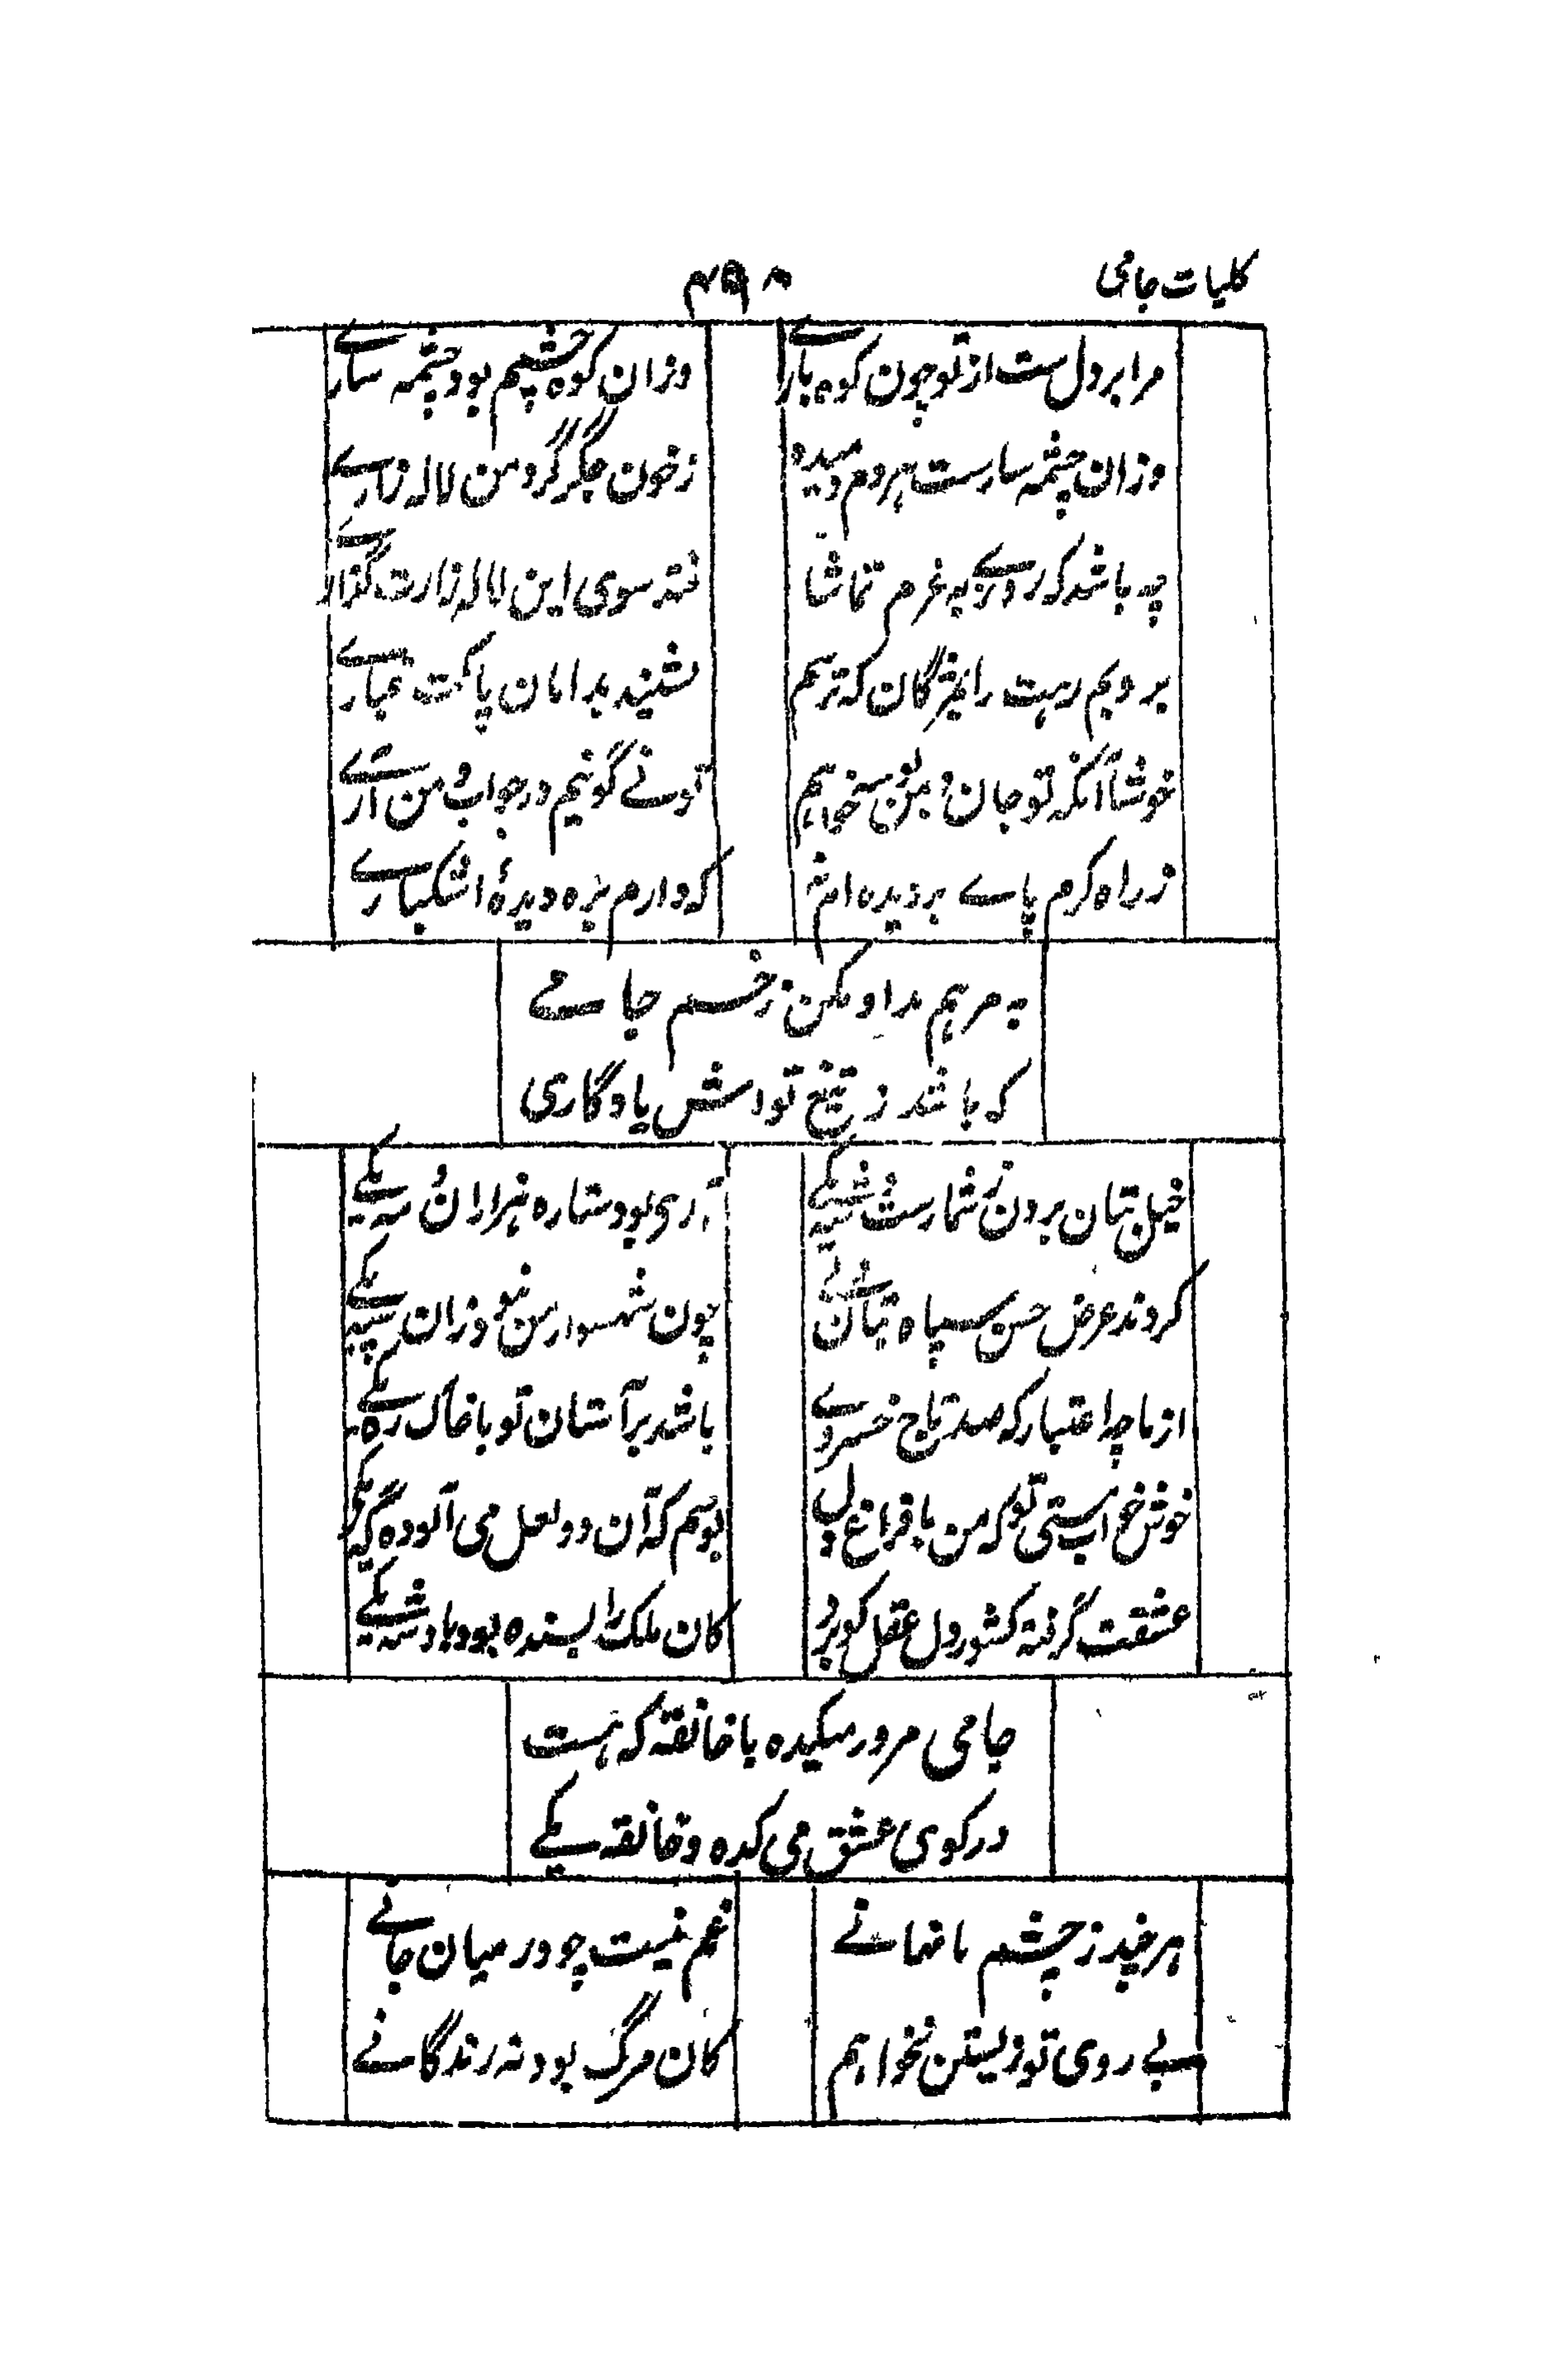 کلیات جامی
۴۹۸
مرا بر دل ست از تو چون کوه بارے
وزان کوه چشمم بود چشمه سارے
وزان چشمه سارست هر دم دمیده
ز خون جگر گرد من لاله زارے
چه باشد که روزے به عزم تماشا
فتد سوی این لاله زارت گذارے
بروبم رهت را بمژگان که ترسم
نشیند بدامان پاکت غبارے
خوشا آنکه تو جان و من بوسه خواهم
تو نے گوئیم در جواب و من آرے
ز راه کرم پاے بر دیده ام نه
که دارم بره دیدهٔ اشکبارے
به مرهم مداو مکن زخم جامے
که باشد ز تیغ تواش یادگاری
خیل بتان برون ز شمارست و شه یکے
آری بود ستاره هزاران و مه یکے
کردند عرض حسن سپاه بتان ولے
چون شهسوار من نبود زان سپه یکے
از ما چه اعتبار که صد تاج خسروے
باشد بر آستان تو با خاک ره یکے
خوش خواب مستی تو که من با فراغ دل
بوسم گه آن دو لعل می آلوده گه یکے
عشقت گرفته کشور دل عقل گو برو
کان ملک را بسنده بود پادشه یکے
جامی مرو ز میکده با خانقه که هست
در کوی عشق می کده و خانقه یکے
هر چند ز چشم ما نهانے
غم نیست چو در میان جانے
بے روی تو زیستن نخواهم
کان مرگ بود نه زندگانے